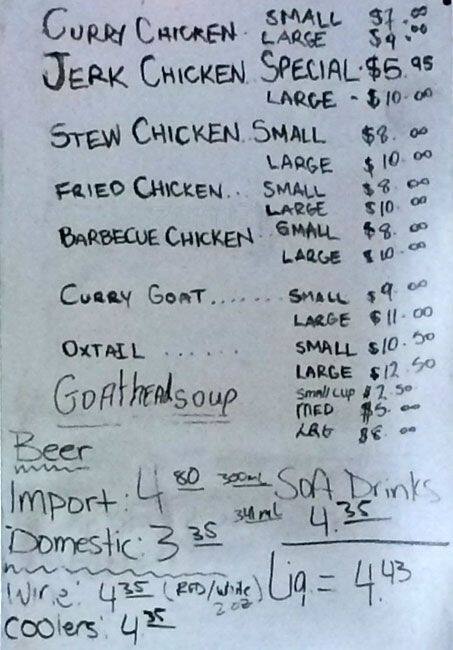 CURRY CHICKEN. SMALL $7.00
LARGE $9.00
JERK CHICKEN SPECIAL. $5.95
LARGE - $10.00
STEW CHICKEN. SMALL $8.00
LARGE $10.00
FRIED CHICKEN... SMALL $8.00
LARGE $10.00
BARBECUE CHICKEN.. SMALL $8.00
LARGE $10.00
CURRY GOAT....... SMALL $9.00
LARGE $11.00
OXTAIL ...... SMALL $10.50
LARGE $12.50
GOAT HEAD SOUP small cup $2.50
MED $5.00
LRG $8.00
Beer
Import: 4 80 300mL SOA Drinks
Domestic: 3 35 341mL 4.35
Wine: 4 35 (RED/White) Liq. = 4.43
2oz
Coolers: 4 35